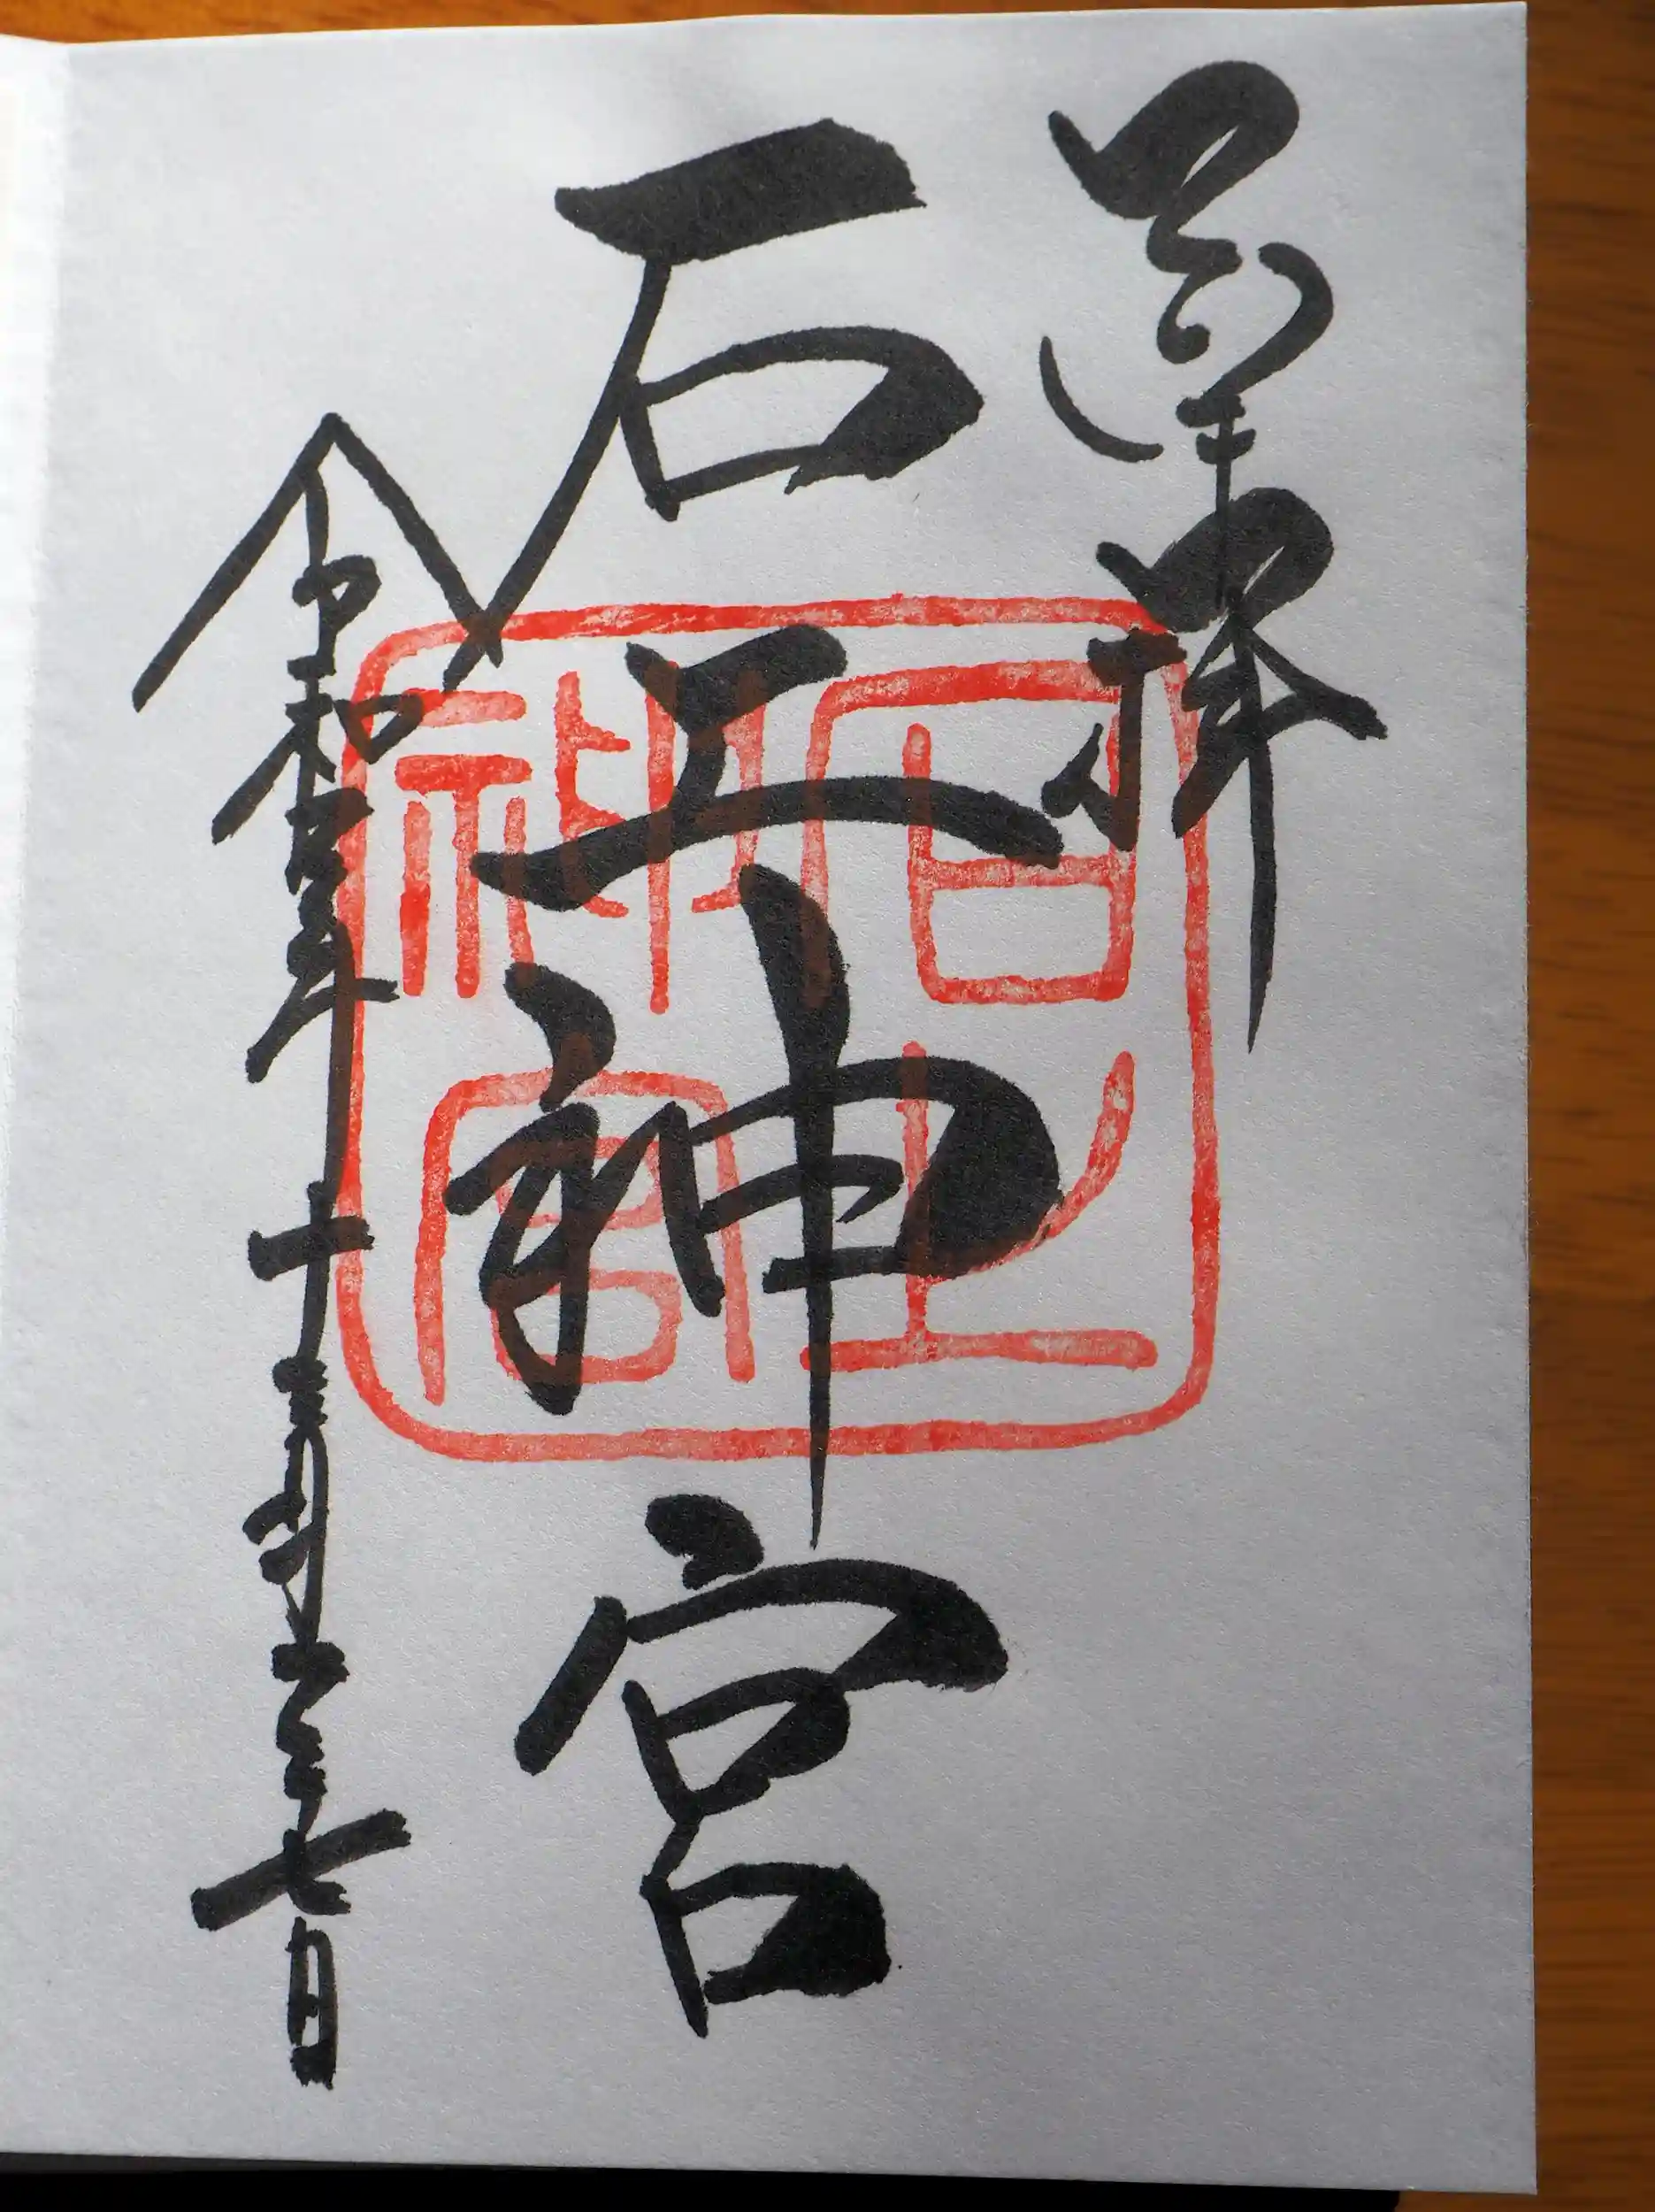 奉拝
石上神宮
令和 年十 月 七日
石上神宮